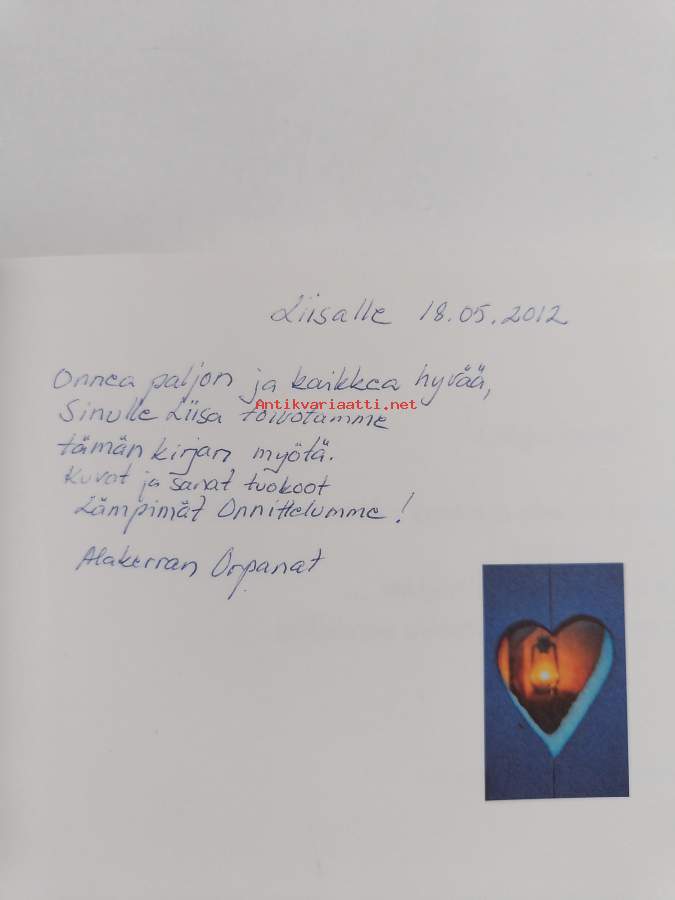 Liisalle 18.05.2012
Onnea paljon ja kaikkea hyvää,
Antikvariaatti.net
Sinulle Liisa toivotamme
tämän kirjan myötä.
Kuvat ja sanat tuokoot
Lämpimät Onnittelumme!
Alakerran Orpanat